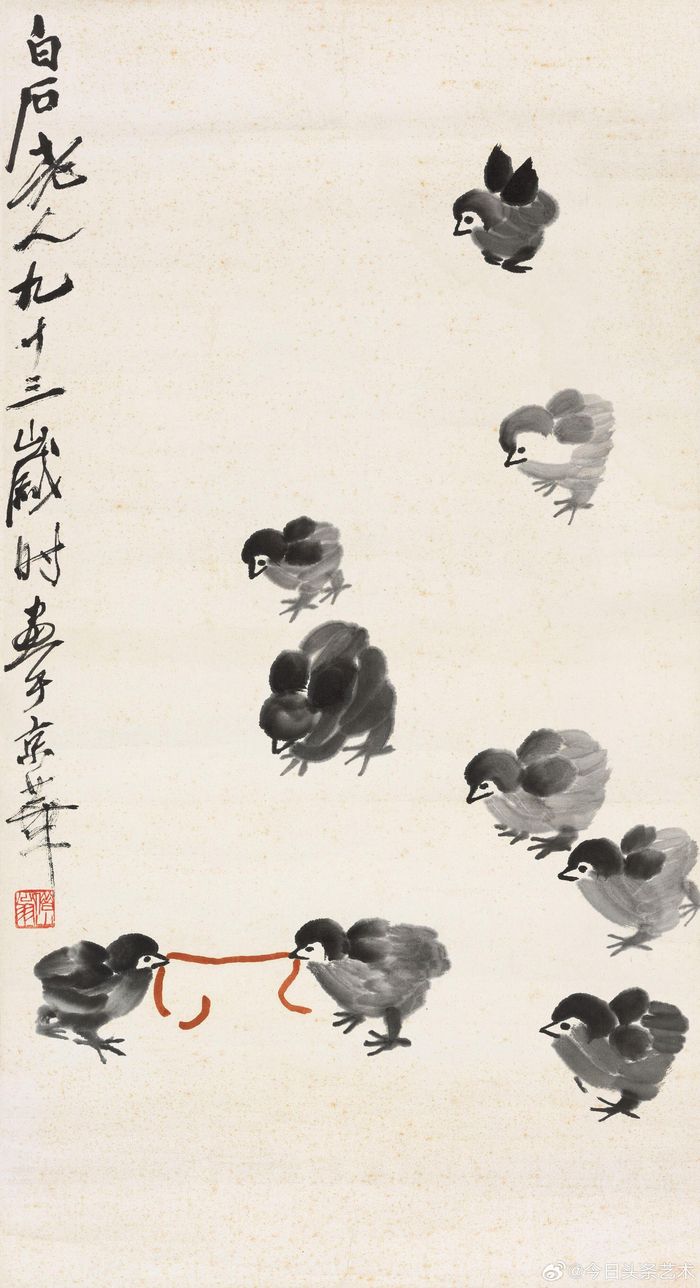 白石老人九十三岁时画于京华
@今日头条艺术